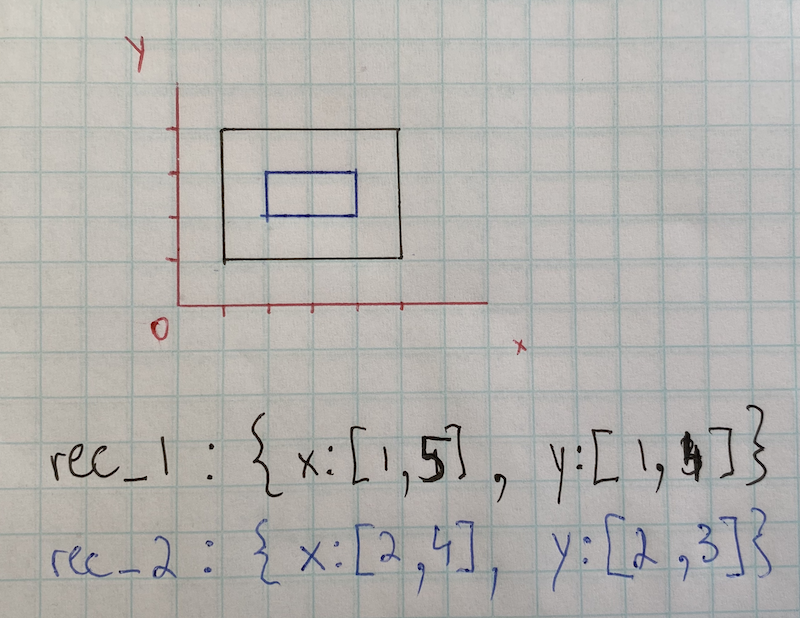 y
0
x
rec_1 : { x:[1,5] , y:[1,4]}
rec_2 : { x:[2,4], y:[2,3]}